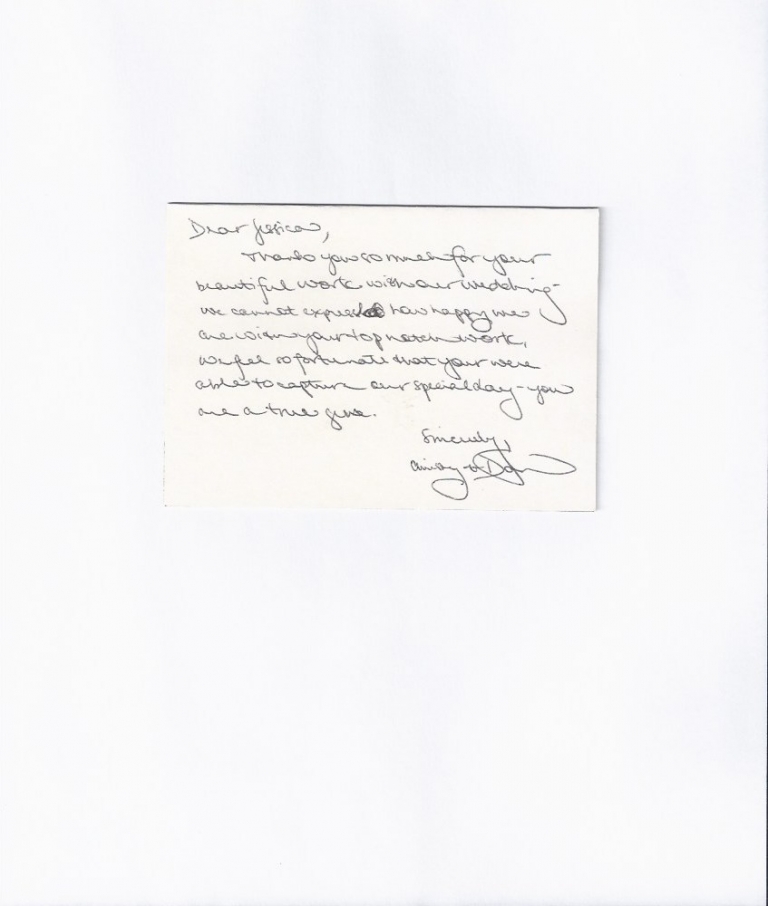 Dear Jessica,
Thank you so much for your
beautiful work with our wedding-
we cannot express how happy we
are with your top notch work.
We feel so fortunate that you were
able to capture our special day - you
are a true gem.
Sincerely,
&